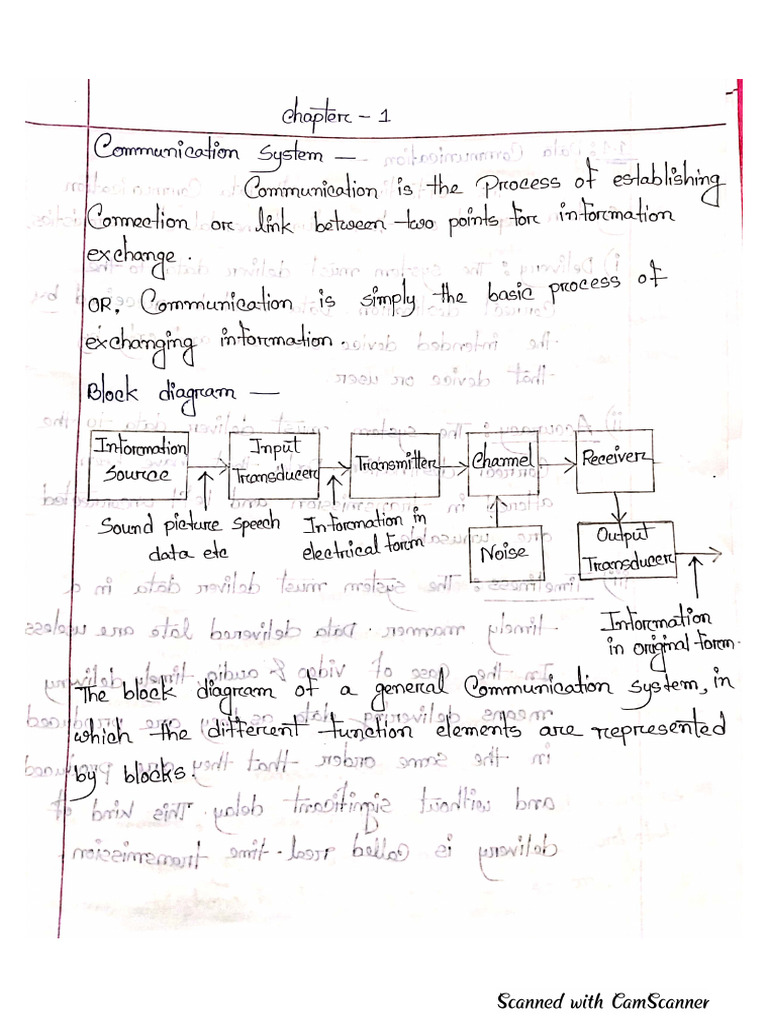 Chapter - 1
Communication System —
Communication is the Process of establishing
Connection or link between two points for information
exchange.
OR, Communication is simply the basic process of
exchanging information.
Block diagram —
Information Source
Input Transducer
Transmitter
Channel
Receiver
Sound picture speech
data etc
Information in
electrical form
Noise
Output Transducer
Information
in original form.
The block diagram of a general Communication system, in
which the different function elements are represented
by blocks.
Scanned with CamScanner